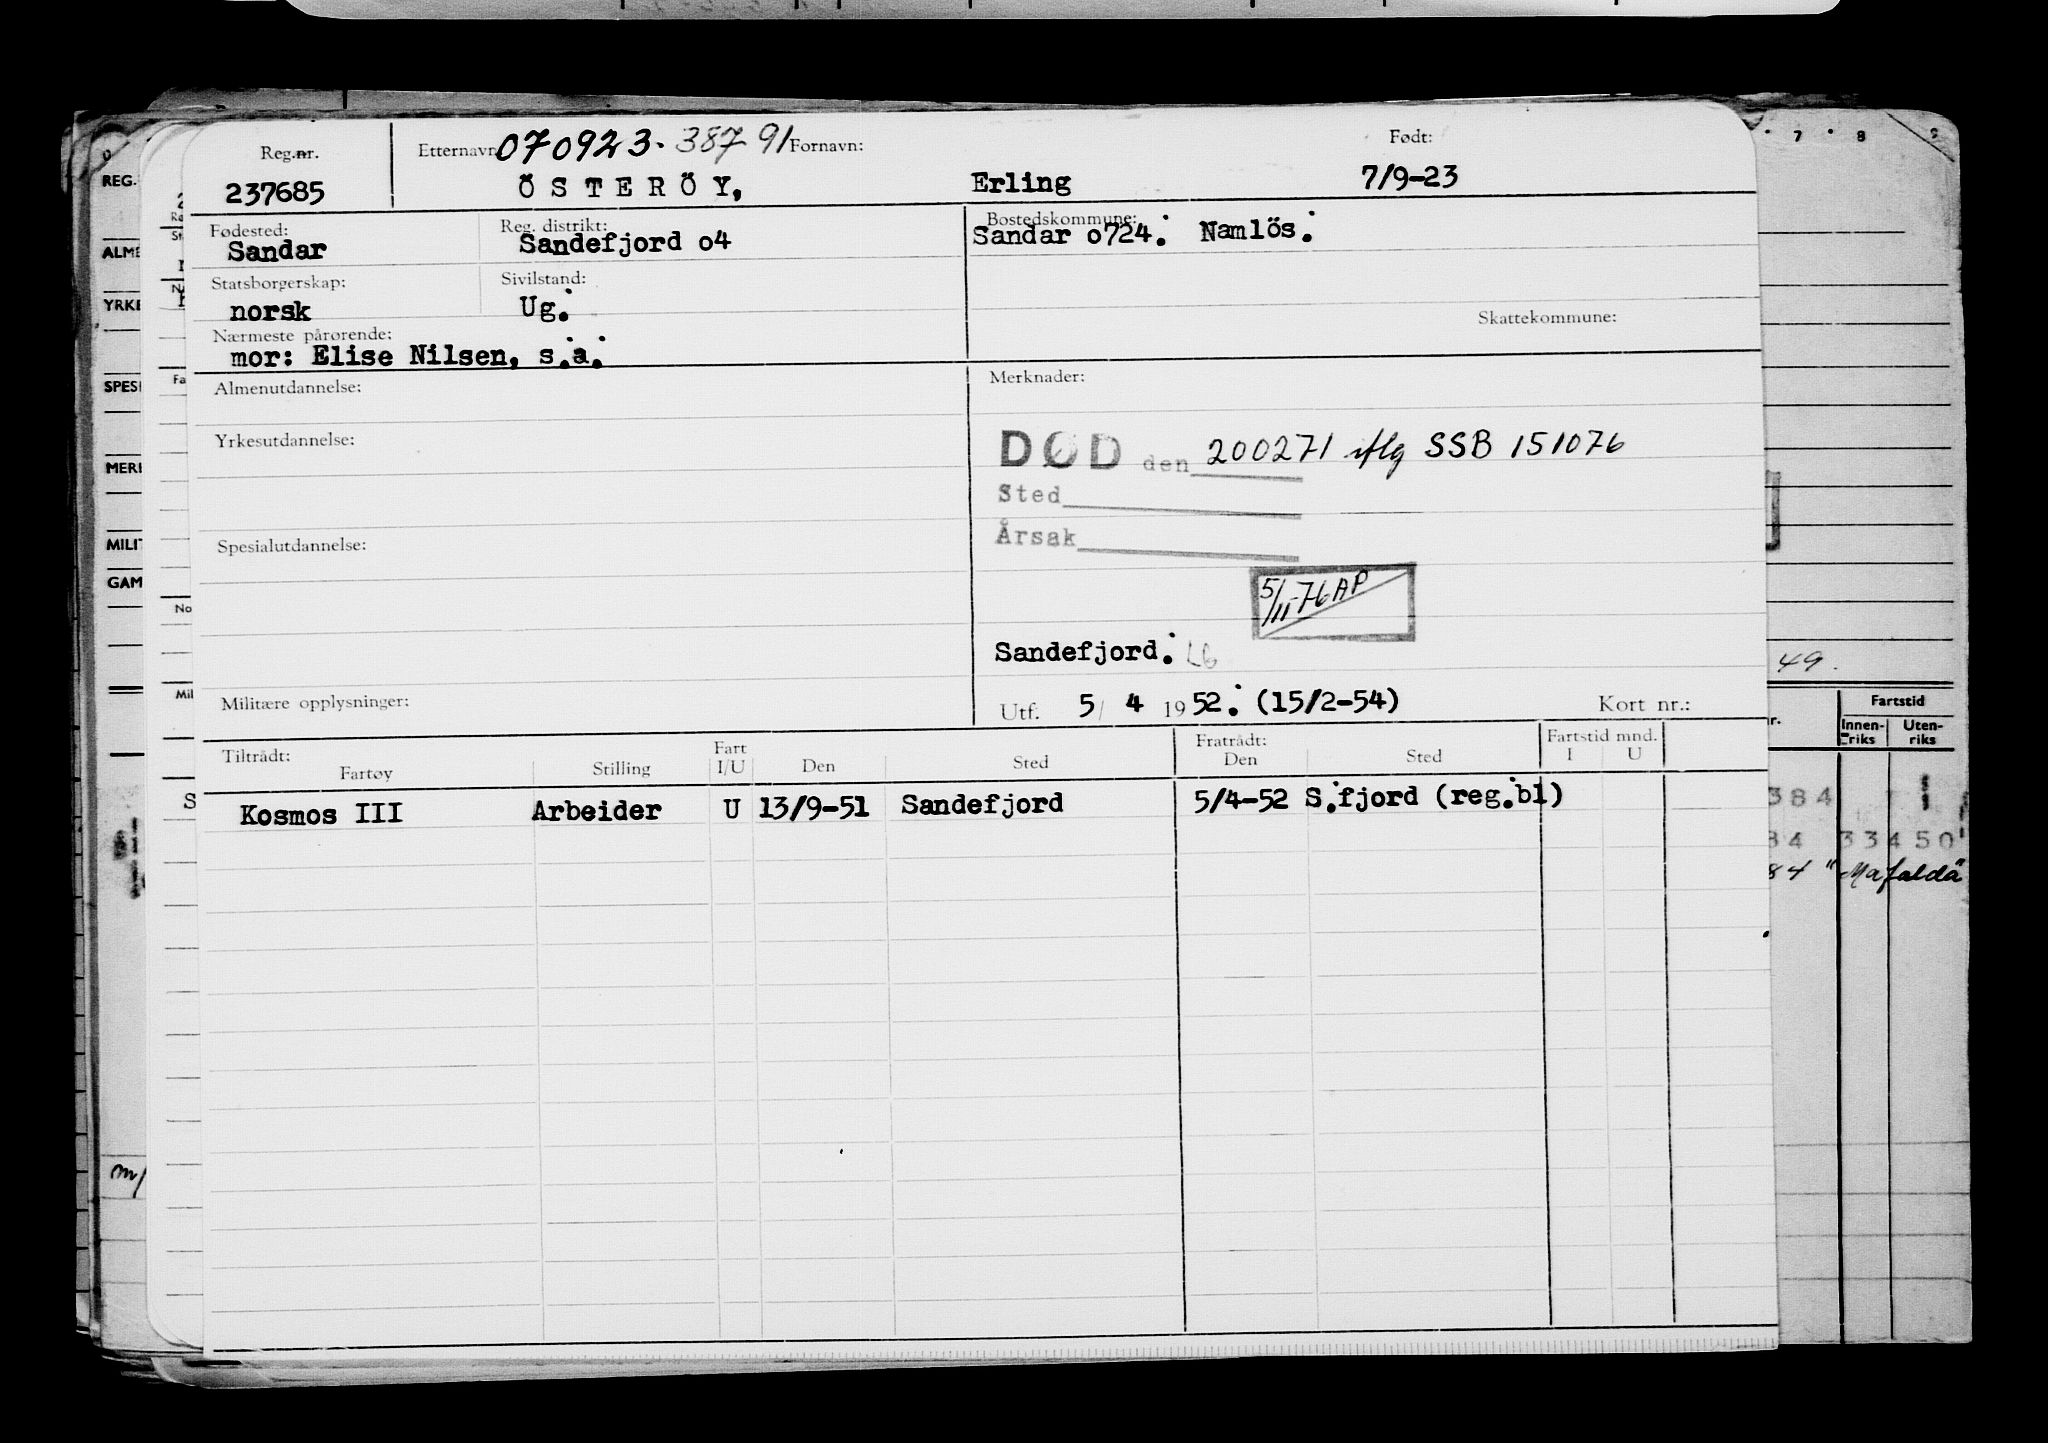 Reg.nr. Etternavn 070923. 38791 Fornavn: Født:
237685 ÖSTERÖY, Erling 7/9-23
Fødested: Reg. distrikt: Bostedskommune:
Sandar Sandefjord o4 Sandar o724. Namlös.
Statsborgerskap: Sivilstand:
norsk Ug.
Skattekommune:
Nærmeste pårørende:
mor: Elise Nilsen, s.a.
Almenutdannelse: Merknader:
Yrkesutdannelse:
DØD den 200271 iflg SSB 151076
Sted
Årsak
Spesialutdannelse:
5/11-76 AP
Sandefjord. LG
Militære opplysninger: Utf. 5/ 4 1952. (15/2-54) Kort nr.:
Tiltrådt: Fart Fratrådt: Fartstid mnd.
Fartøy Stilling I/U Den Sted Den Sted I U
Kosmos III Arbeider U 13/9-51 Sandefjord 5/4-52 S.fjord (reg.bl)
7 8 9
REG.
ALME
YRKE
SPESI
MERI
MILIT
GAM
Fa
No
Mil
S
m/
49.
Fartstid
Innen-riks Uten-riks
384
84 33450
84 "Mafalda"